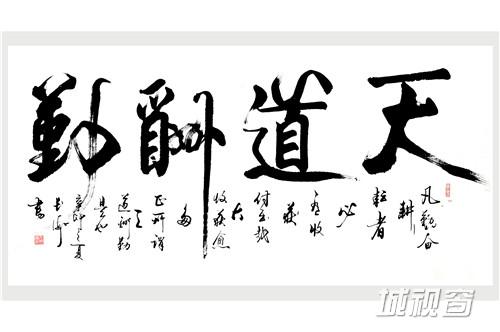 天道酬勤
凡勤奋
耕
耘者
必
有收
获
付出越
大
收获愈
多
正所谓
天
道酬勤
是也
辛卯之夏
书
城视窗